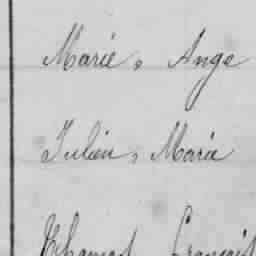 Marie, Ange
Julien, Marie
François